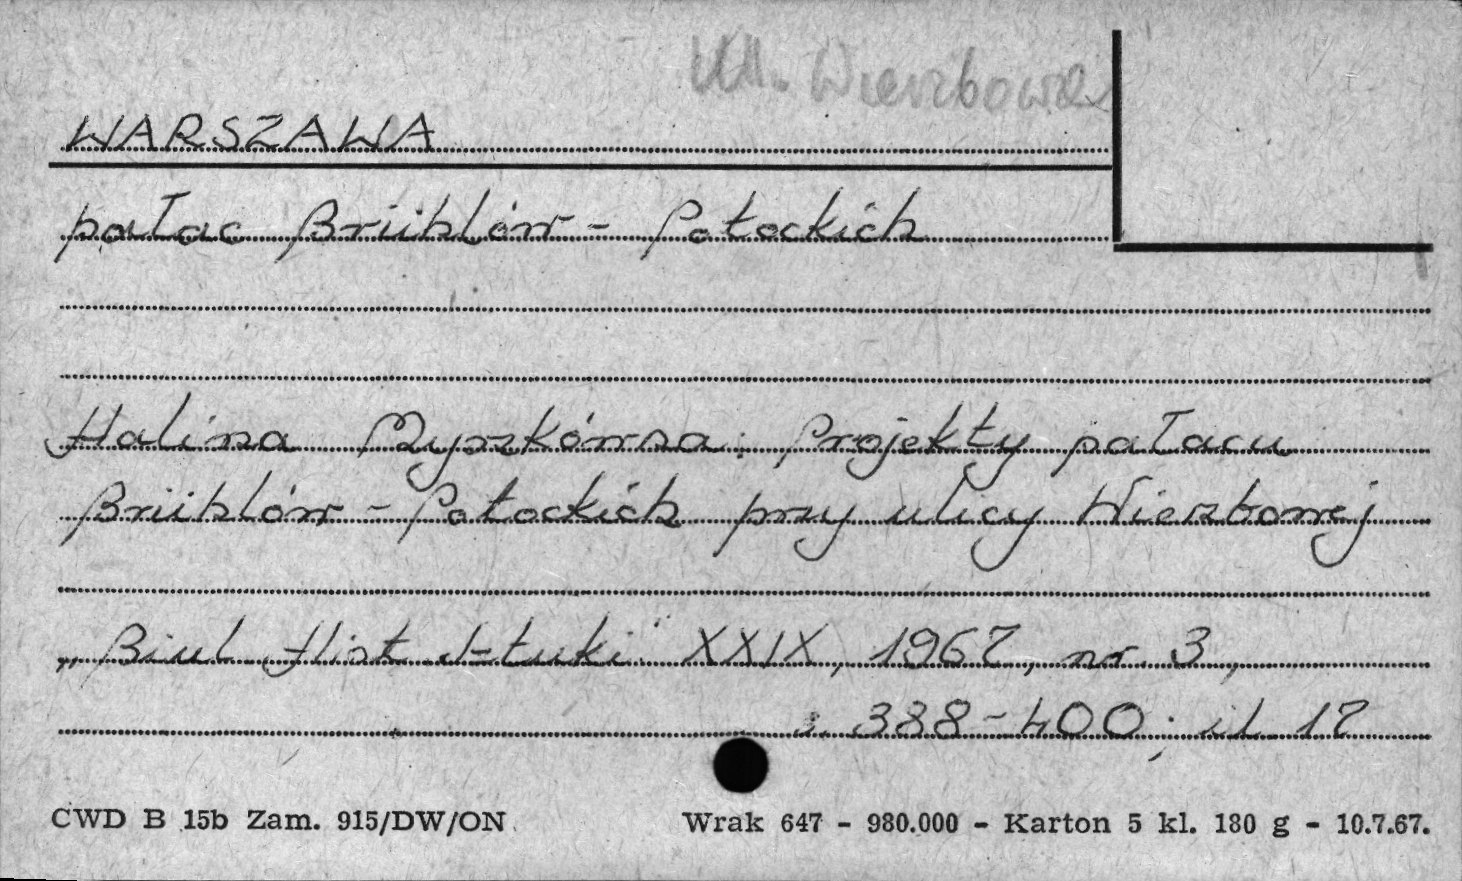 Ul. Wierzbowa
WARSZAWA
pałac Brühlów - Potockich
Halina Myszkówna: Projekty pałacu
Brühlów - Potockich przy ulicy Wierzbowej
„Biul. Hist. Sztuki" XXIX, 1967, nr. 3,
s. 388-400; il. 17
CWD B 15b Zam. 915/DW/ON
Wrak 647 - 980.000 - Karton 5 kl. 180 g - 10.7.67.